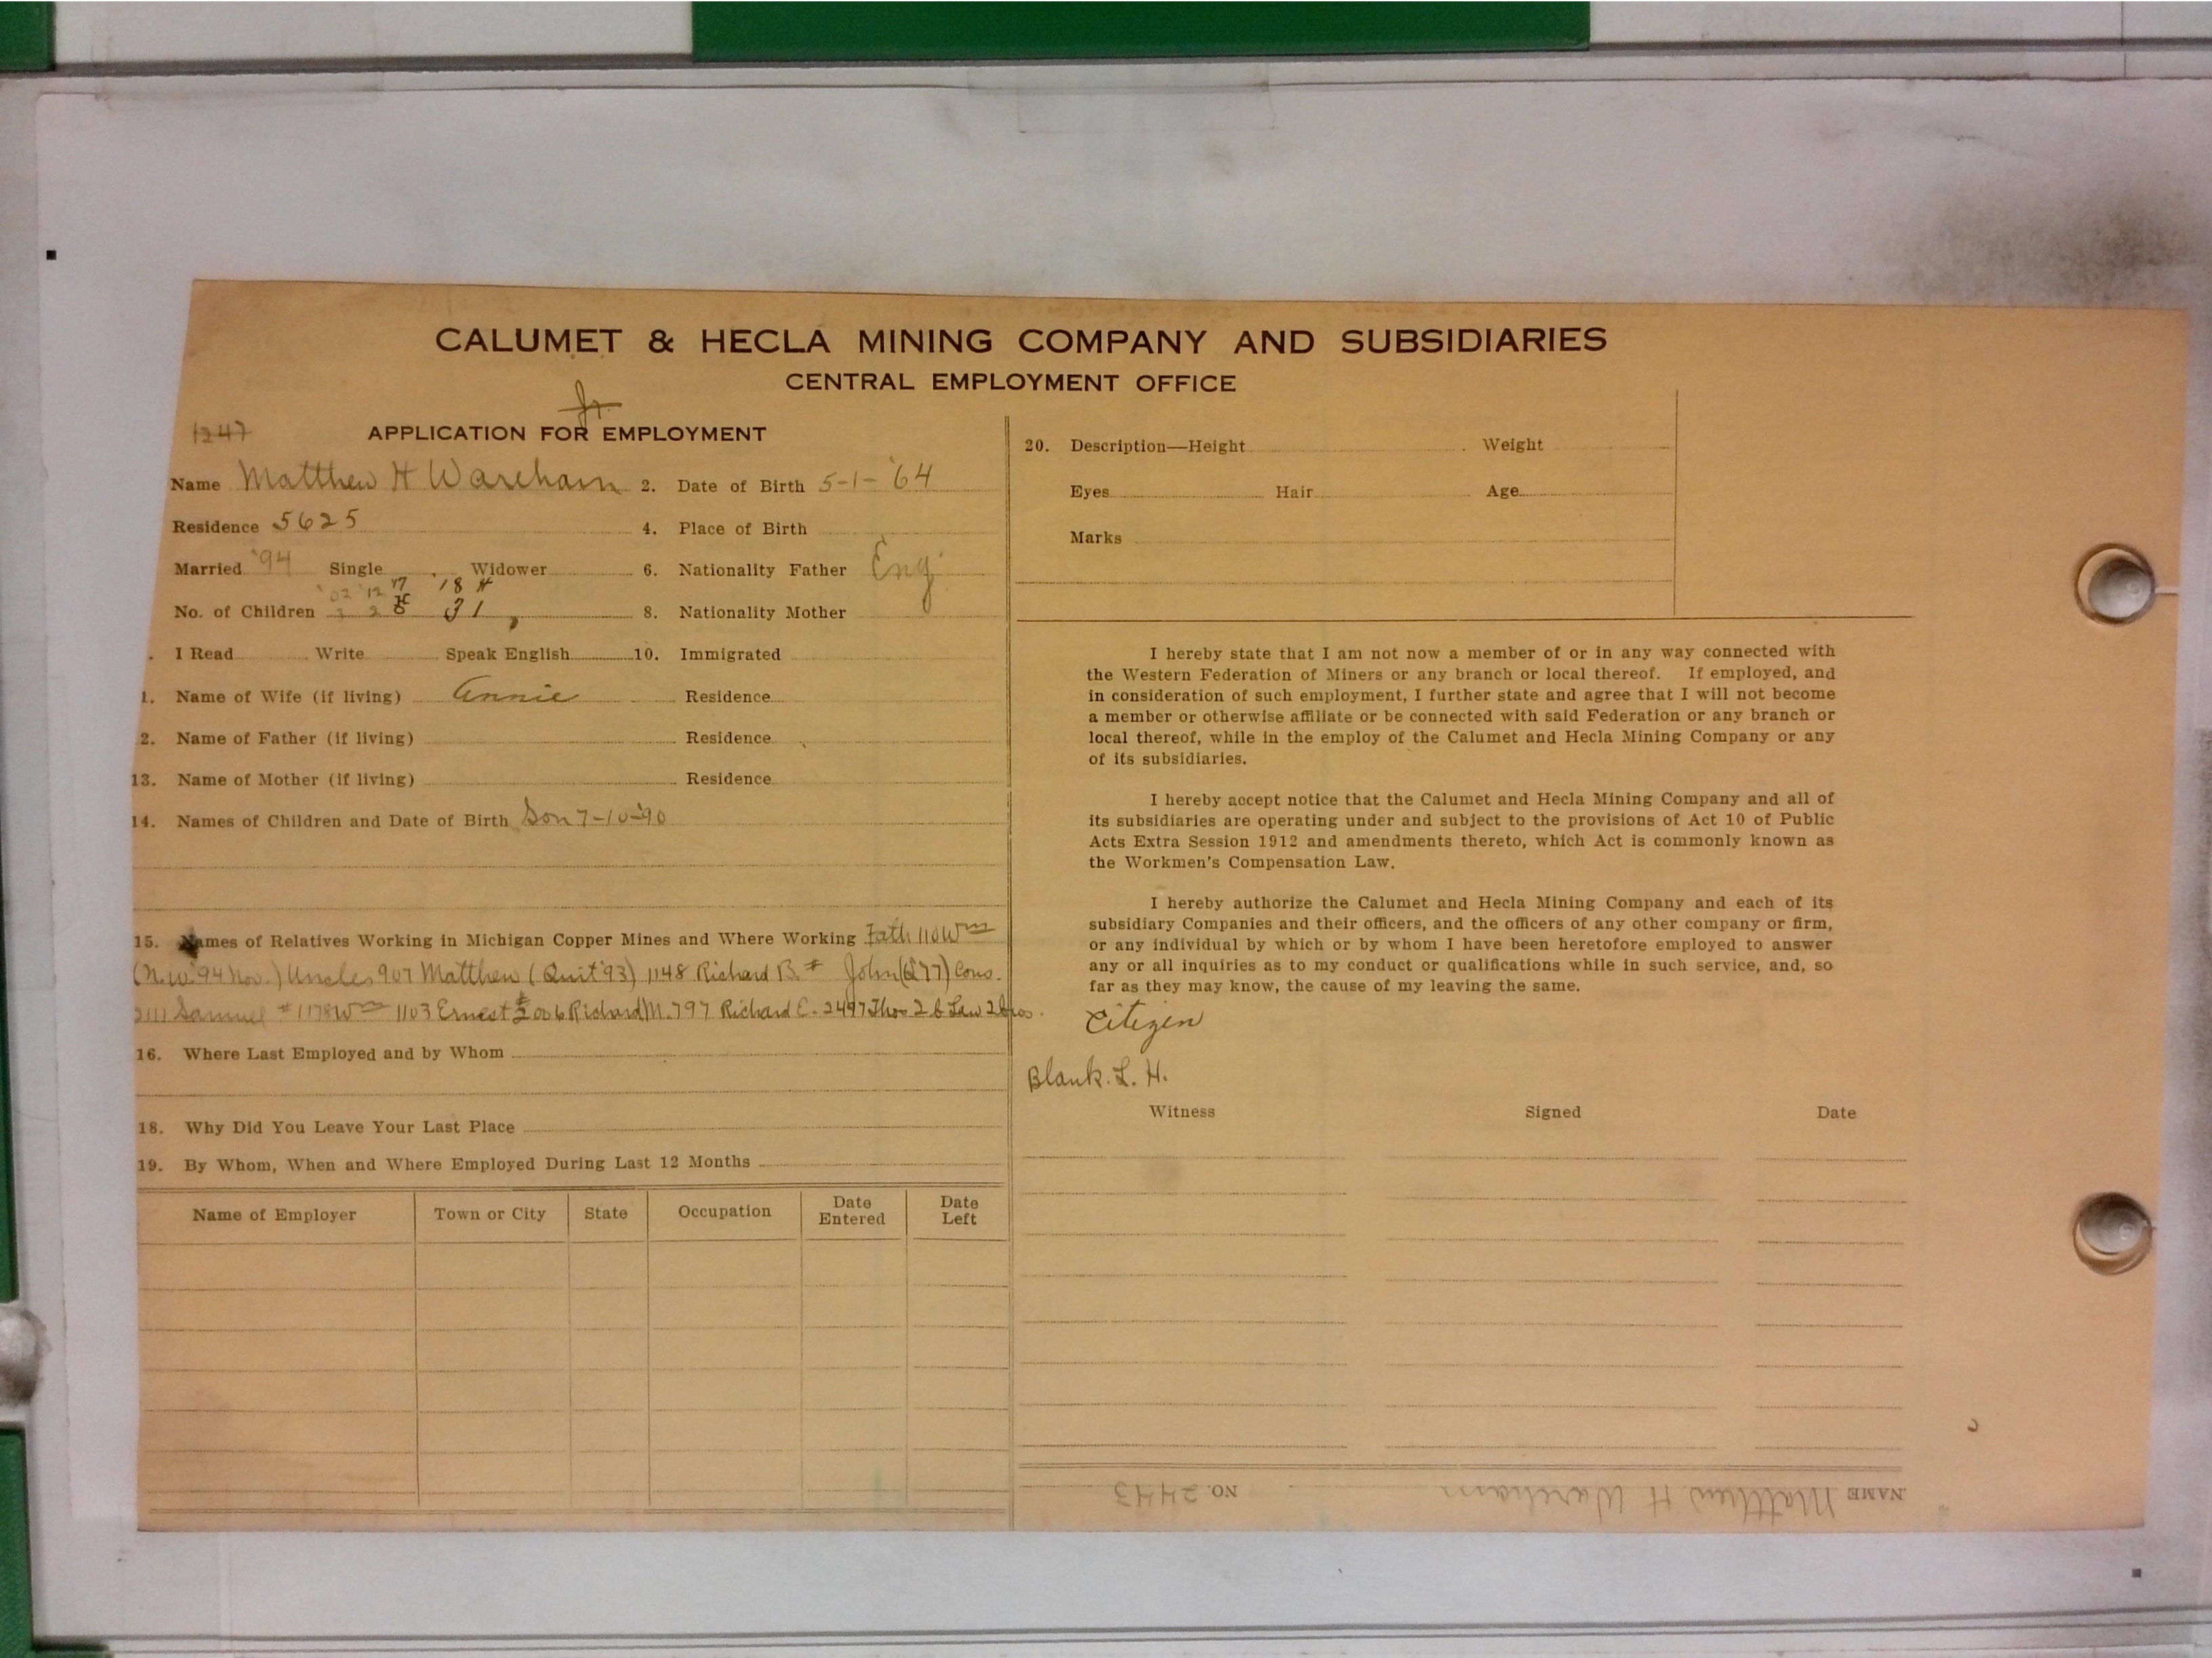 CALUMET & HECLA MINING COMPANY AND SUBSIDIARIES
CENTRAL EMPLOYMENT OFFICE
Jr.
1247 APPLICATION FOR EMPLOYMENT
Name Matthew H Wareham 2. Date of Birth 5-1-'64
Residence 5625 4. Place of Birth
Married '94 Single Widower 6. Nationality Father Eng.
'02 '12 '17 '18 #
No. of Children 3 2 31 8. Nationality Mother
. I Read Write Speak English 10. Immigrated
1. Name of Wife (if living) Annie Residence
2. Name of Father (if living) Residence
13. Name of Mother (if living) Residence
14. Names of Children and Date of Birth Son 7-10-'90
15. Names of Relatives Working in Michigan Copper Mines and Where Working Fath 110 Wm
(N.W. '94 Nov.) Uncles 907 Matthew (Quit '93) 1148 Richard B. # John (Q'77) Cous.
2111 Samuel # 1178 Wm 1103 Ernest # 2006 Richard M. 797 Richard C. 2497 Thos 2 b Law 2 bros.
16. Where Last Employed and by Whom
18. Why Did You Leave Your Last Place
19. By Whom, When and Where Employed During Last 12 Months
Name of Employer Town or City State Occupation Date Entered Date Left
20. Description—Height Weight
Eyes Hair Age
Marks
I hereby state that I am not now a member of or in any way connected with
the Western Federation of Miners or any branch or local thereof. If employed, and
in consideration of such employment, I further state and agree that I will not become
a member or otherwise affiliate or be connected with said Federation or any branch or
local thereof, while in the employ of the Calumet and Hecla Mining Company or any
of its subsidiaries.
I hereby accept notice that the Calumet and Hecla Mining Company and all of
its subsidiaries are operating under and subject to the provisions of Act 10 of Public
Acts Extra Session 1912 and amendments thereto, which Act is commonly known as
the Workmen's Compensation Law.
I hereby authorize the Calumet and Hecla Mining Company and each of its
subsidiary Companies and their officers, and the officers of any other company or firm,
or any individual by which or by whom I have been heretofore employed to answer
any or all inquiries as to my conduct or qualifications while in such service, and, so
far as they may know, the cause of my leaving the same.
Citizen
Blank. L. H.
Witness Signed Date
NAME Matthew H Wareham NO. 2443